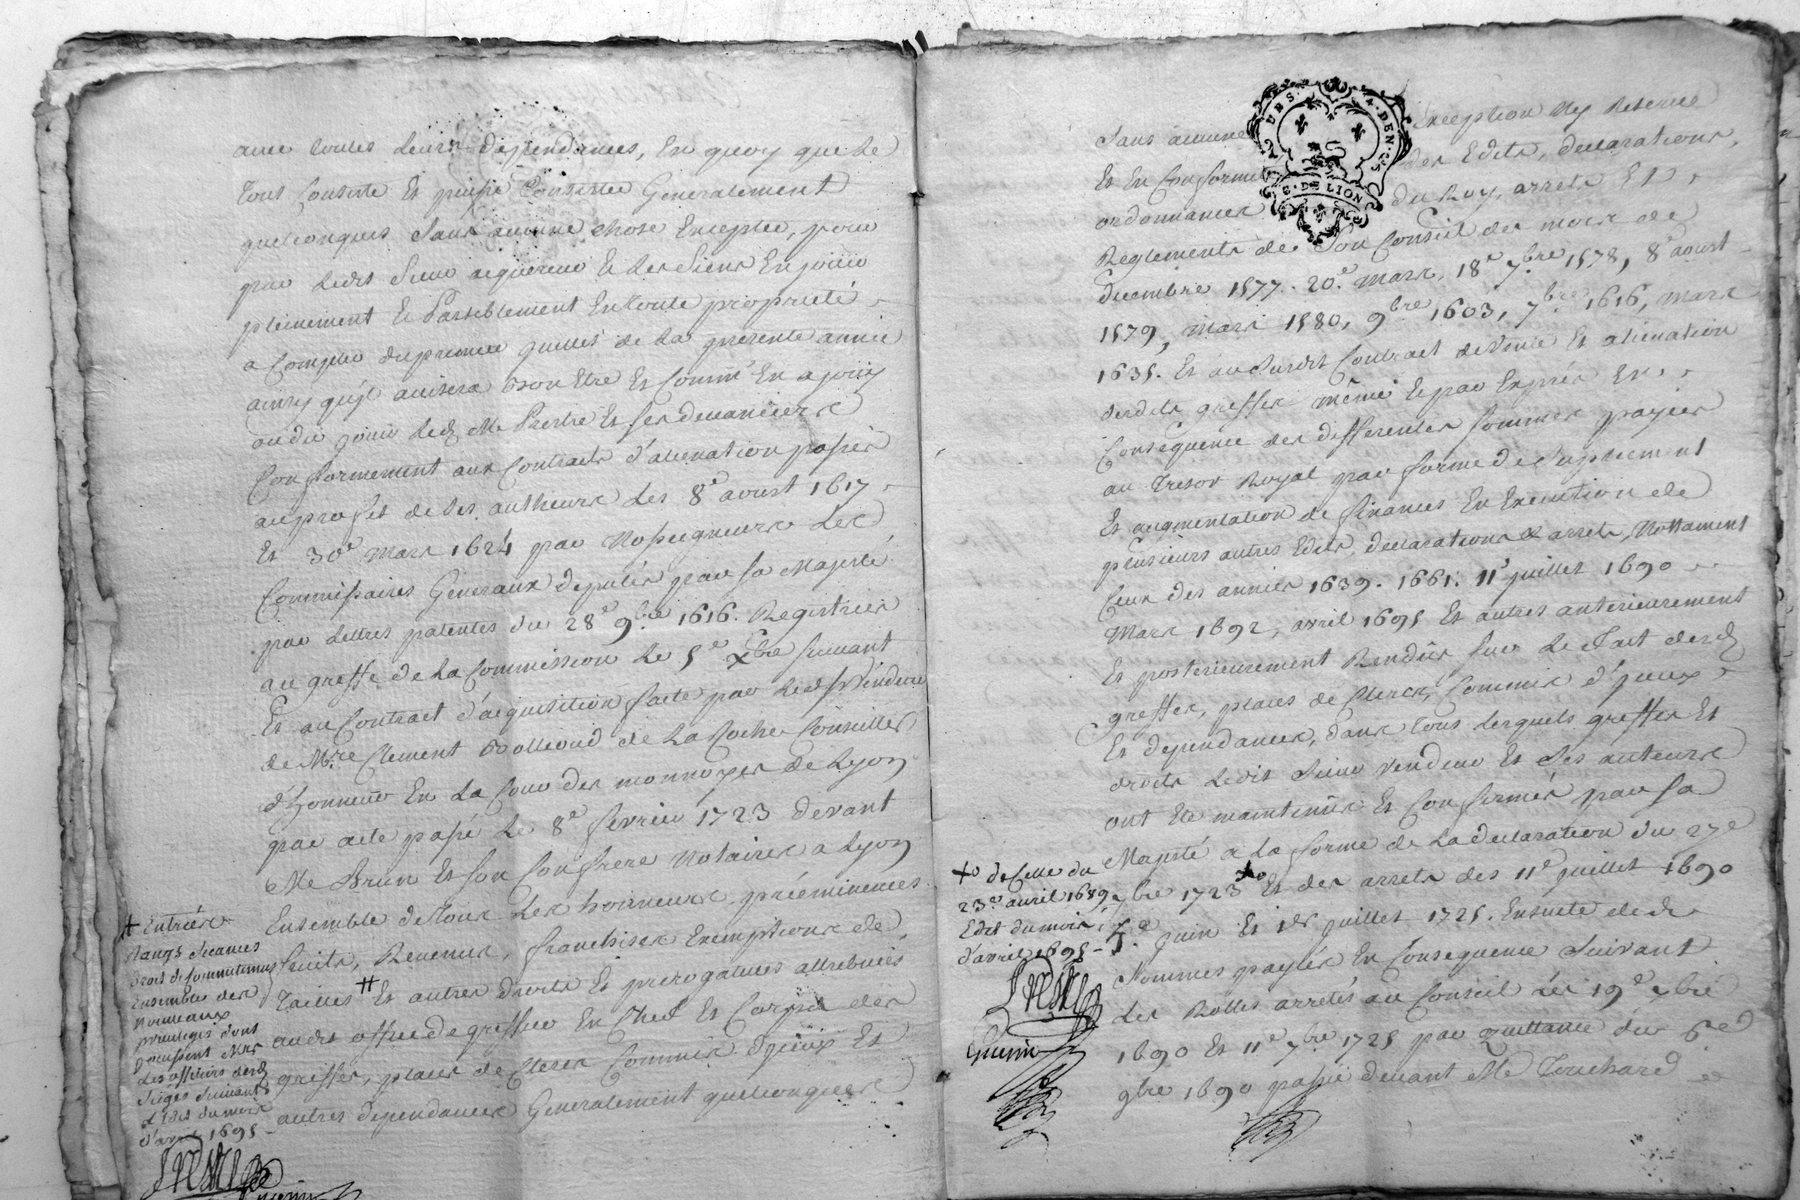 avec toutes leurs dependances, En quoy que le
tout Consiste Et puisse Consister Generalement
quelconques Sans aucune chose Exceptée, pour
par ledit Sieur acquereur Et les Siens En jouir
pleinement Et Paisiblement En toute proprieté
a Compter du premier juillet de la presente année
ainsy qu'jl avisera bon Etre Et Comme En a jouy
ou du jouir led. Me Prestre Et ses devanciers
Conformement aux Contracts d'alienation passés
au profit de ses autheurs les 8e aoust 1617
Et 30e Mars 1624 par Nosseigneurs les
Commissaires Generaux deputés par sa Majesté
par lettres patentes du 28e 9bre 1616. Registrées
au greffe de la Commission le 5e xbre suivant
Et au Contract d'acquisition faite par ledit Vendeur
de Mre Clement de la Roche Conseiller
d'honneur En la Cour des monnoyes de Lyon
par acte passé le 8e fevrier 1723 devant
Me Brun Et son Confrere Notaires a Lyon
Ensemble de tous les honneurs, préeminences
fruits, Revenus, franchises Exemptions de
Tailles # Et autres droits Et prerogatives attribuées
audit office de greffier En Chef Et Corps des
greffes, places de Clercs Commis d'jceux Et
autres dependances Generalement quelconques
# Entrées
Rangs Seances
droit de Committimus
Ensemble des
Nouveaux
privileges dont
jouissent Mrs
les officiers desd.
Sieges Suivant
l'Edit du mois
d'avril 1695
GEN. DE LION
4. DEN. RS
Sans aucune Exception Ny Reserve
Et En Conformité des Edits, declarations,
ordonnances du Roy, arrets Et
Reglements de Son Conseil des mois de
Decembre 1577. 20e mars, 18e 7bre 1578, 8e aoust
1579, mars 1580, 9bre 1603, 7bre 1616, mars
1635. Et au Susdit Contract de Vente Et alienation
desdits greffes même Et par Exprés En
Consequence des differentes sommes payées
au Tresor Royal par forme de Suplement
Et augmentation de finances En Execution de
plusieurs autres Edits, declarations & arrets, Nottament
Ceux des années 1639. 1661. 11e juillet 1690
Mars 1692, avril 1695 Et autres anterieurement
Et posterieurement Rendus sur le Fait desd.
greffes, places de Clercs, Commis d'jceux
Et dependances, dans tous lesquels greffes Et
droits ledit Sieur Vendeur Et Ses auteurs
ont Eté maintenus Et Confirmés par Sa
Majesté a la forme de la declaration du 27e
7bre 1723 +o Et des arrets des 11e juillet 1690
5e juin Et 1er juillet 1725. Ensuite de
Sommes payées En Consequence Suivant
les Rolles arretés au Conseil les 19e xbre
1690 Et 11e 7bre 1725 par quittance du 6e
9bre 1690 passé devant Me Touchard
+o de Celle du
23e avril 1689
Edit du mois
d'avril 1695
Guerin